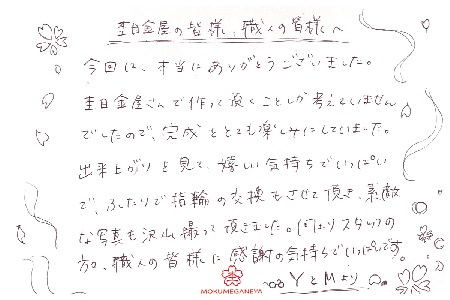 杢目金屋の皆様、職人の皆様へ
今回は、本当にありがとうございました。
杢目金屋さんで作って頂くことしか考えていません
でしたので、完成をとても楽しみにしていました。
出来上がりを見て、嬉しい気持ちでいっぱい
で、ふたりで指輪の交換もさせて頂き、素敵
な写真も沢山撮って頂きました。スタッフの
方々、職人の皆様に感謝の気持ちでいっぱいです。
YとMより
MOKUMEGANEYA